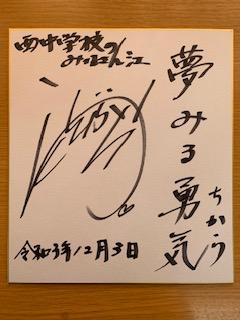 西中学校の
みなさん江
夢みる勇気
ちから
令和3年12月3日